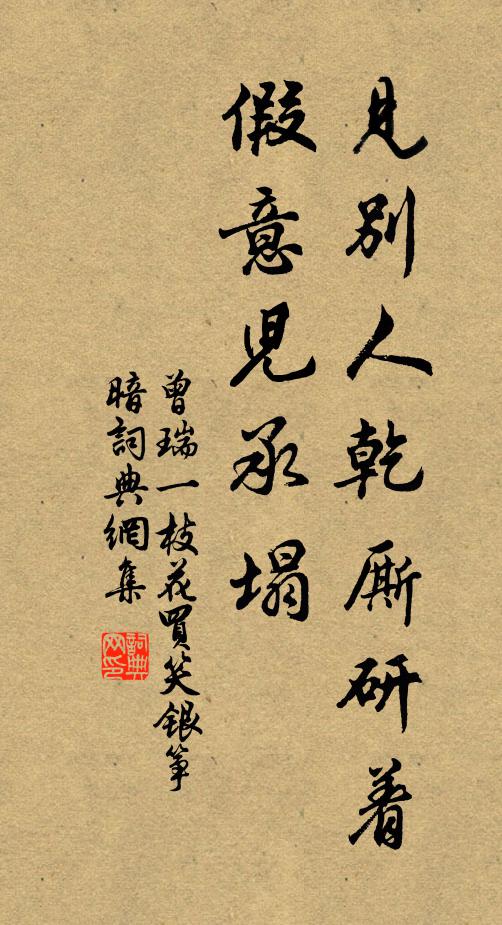 見別人乾厮研着
假意兒承塌
曾瑞一枝花買笑銀箏
暗詞典網集
詞典网印